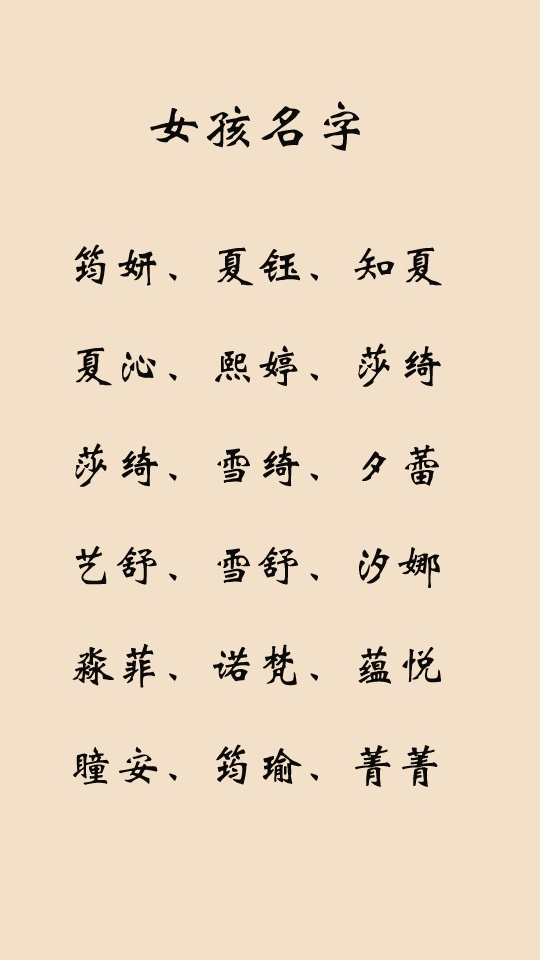 女孩名字
筠妍、夏钰、知夏
夏沁、熙婷、莎绮
莎绮、雪绮、夕蕾
艺舒、雪舒、汐娜
淼菲、诺梵、蕴悦
曈安、筠瑜、菁菁